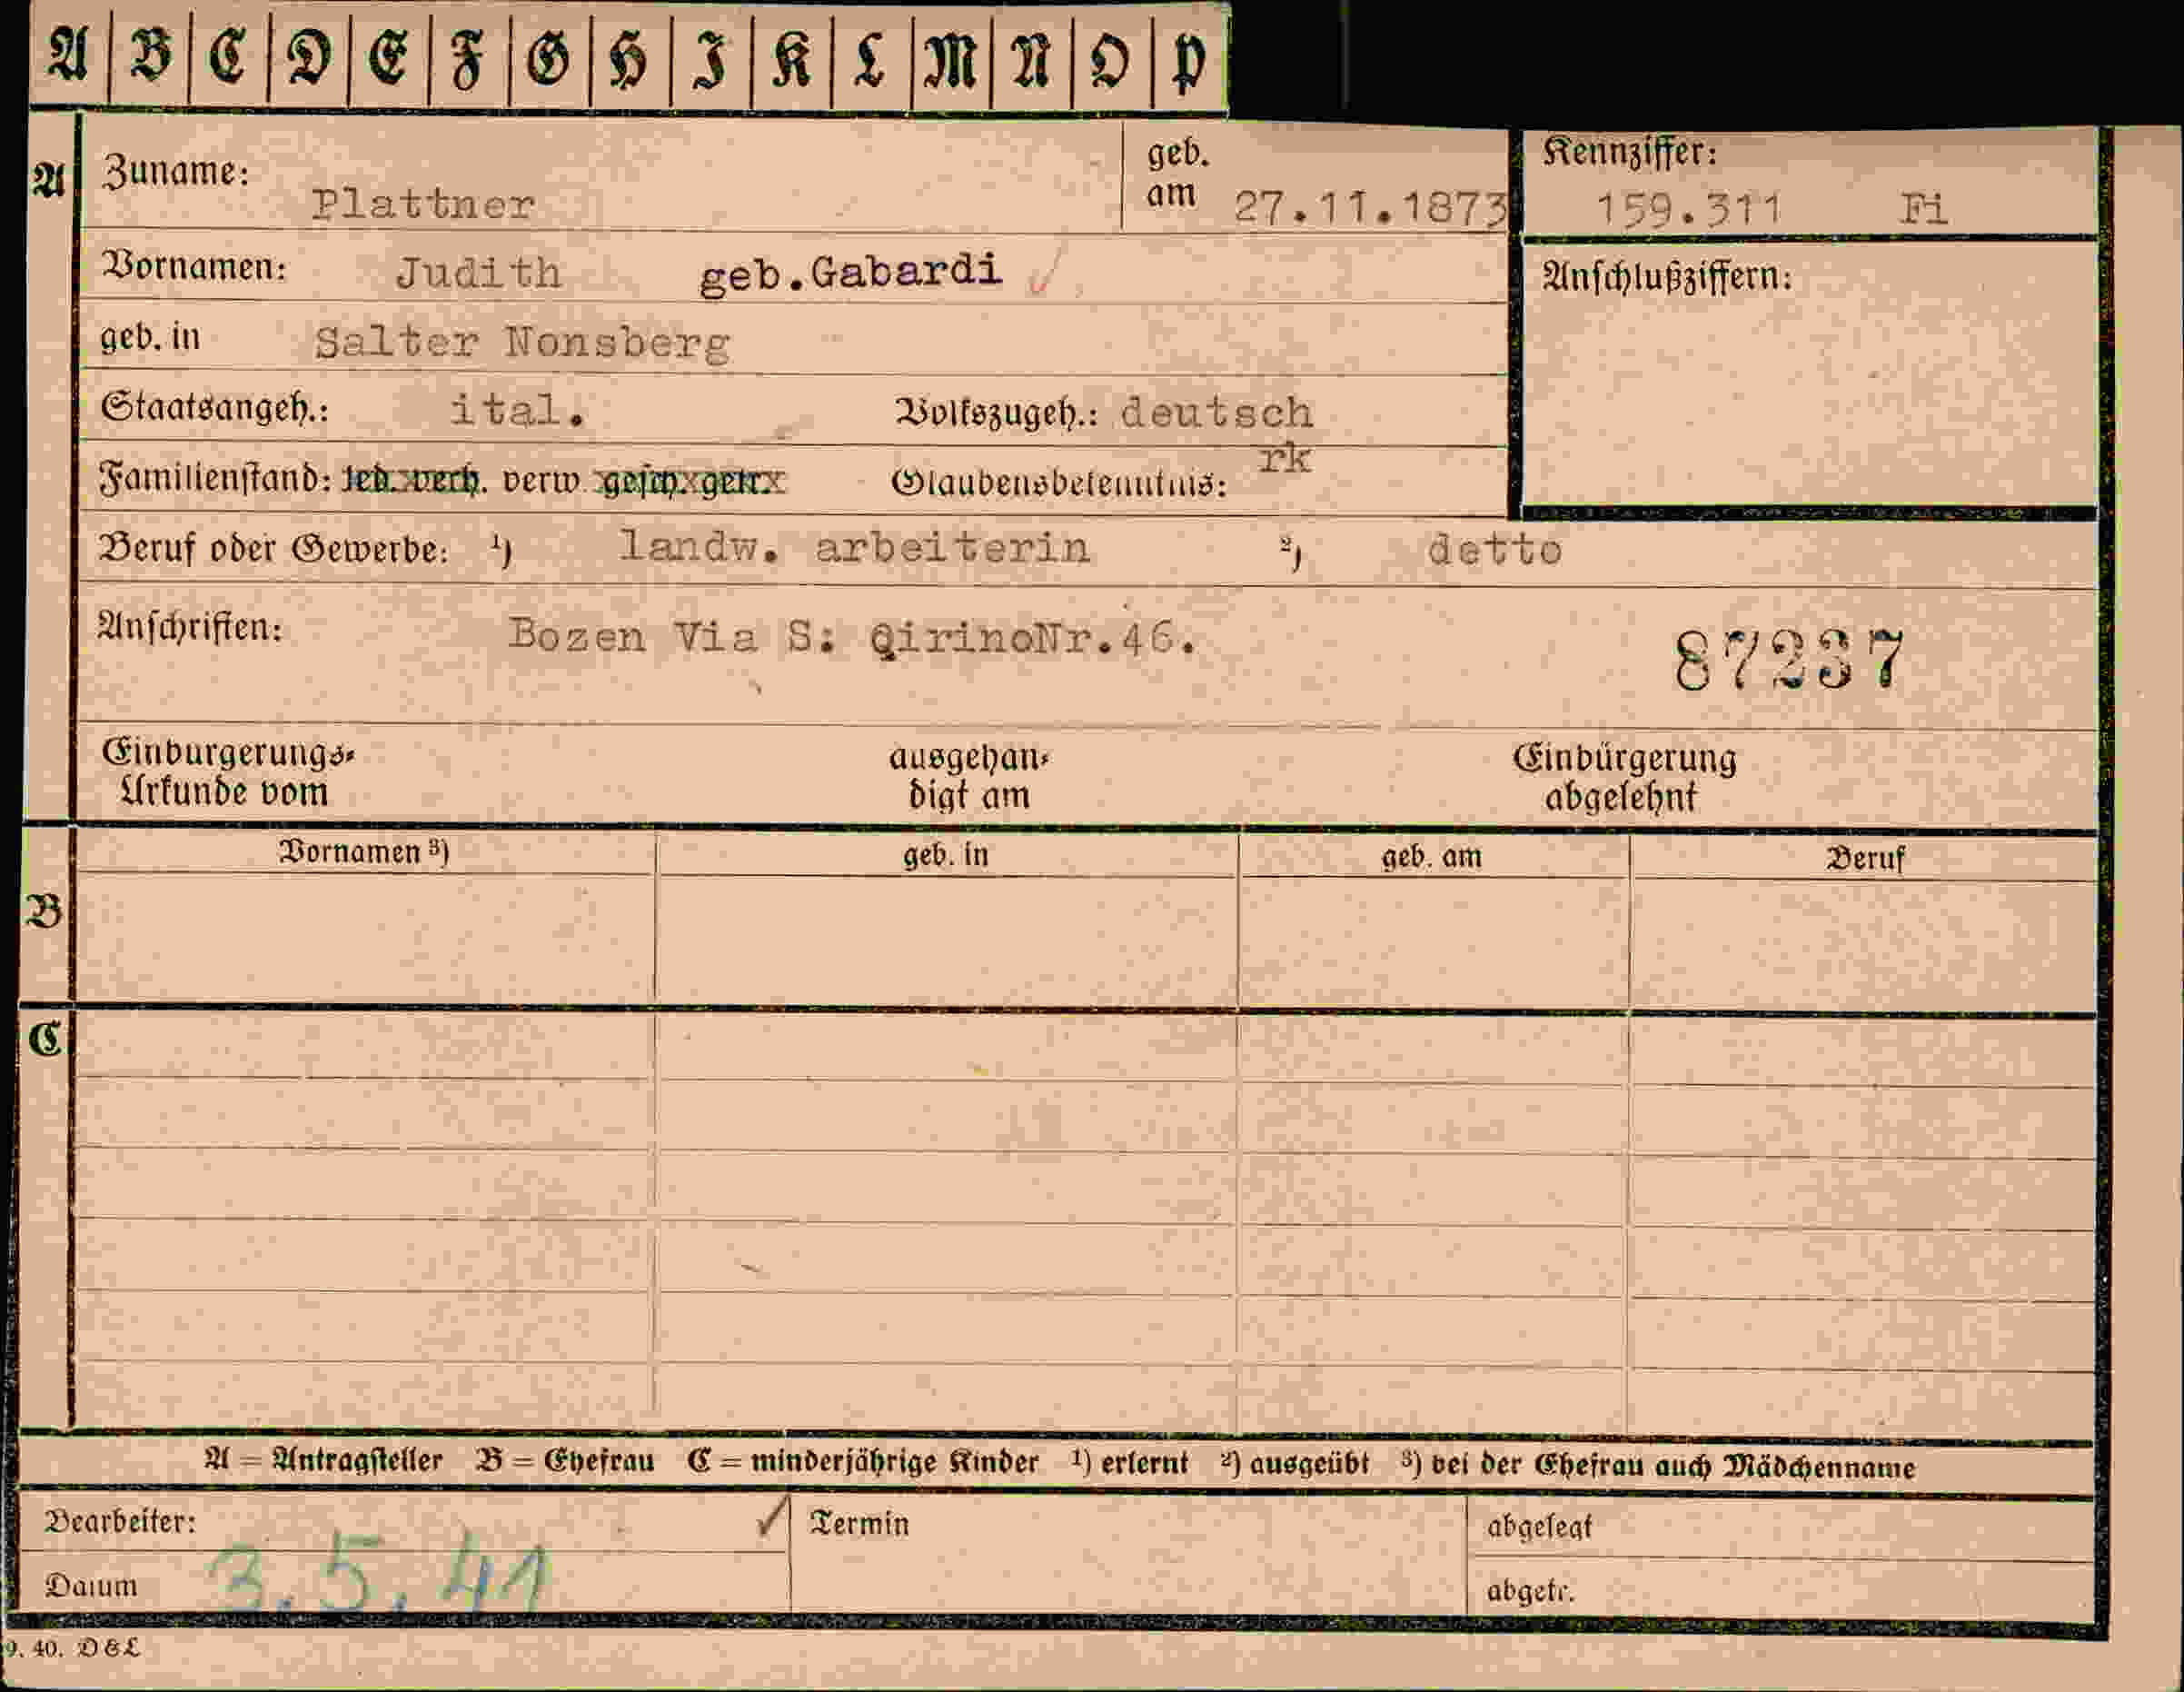 A B C D E F G H I K L M N O P
A Zuname: Plattner geb. am 27.11.1873 Kennziffer: 159.311 Fi
Vornamen: Judith geb.Gabardi Anschlußziffern:
geb. in Salter Nonsberg
Staatsangeh.: ital. Volkszugeh.: deutsch
Familienstand: led. verh. verw gesch. getr. Glaubensbekenntnis: rk
Beruf oder Gewerbe: 1) landw. arbeiterin 2) detto
Anschriften: Bozen Via S: QirinoNr.46. 87237
Einbürgerungs- ausgehän- Einbürgerung
Urkunde vom digt am abgelehnt
Vornamen 3) geb. in geb. am Beruf
B
C
A = Antragsteller B = Ehefrau C = minderjährige Kinder 1) erlernt 2) ausgeübt 3) bei der Ehefrau auch Mädchenname
Bearbeiter: ✓ Termin abgelegt
Datum 3.5.41 abgetr.
9. 40. D&L